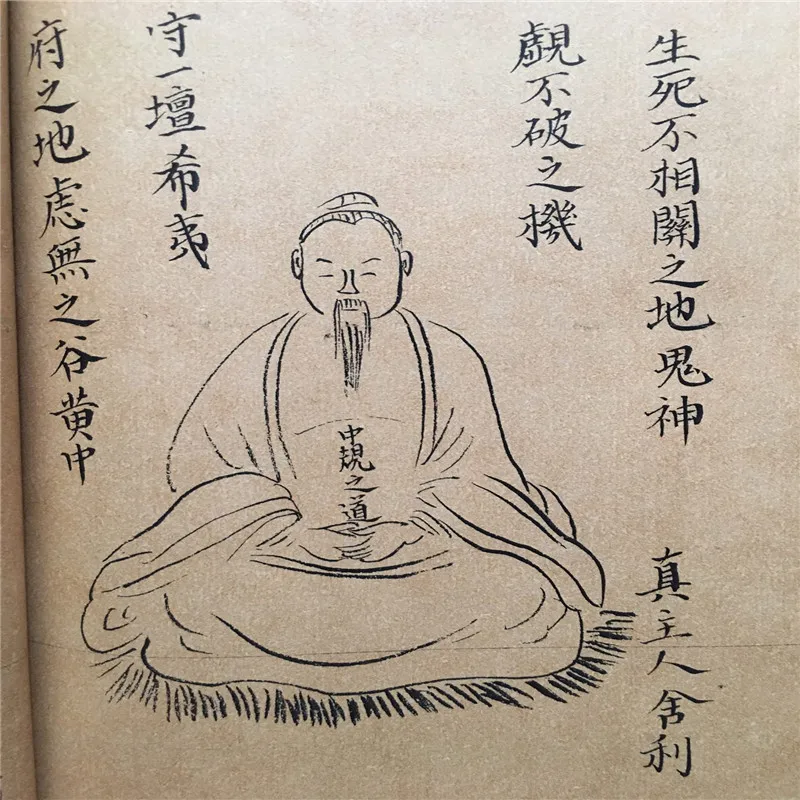 生死不相關之地鬼神
真主人舍利
覷不破之機
中規之道
守一壇希夷
府之地虑無之谷黄中